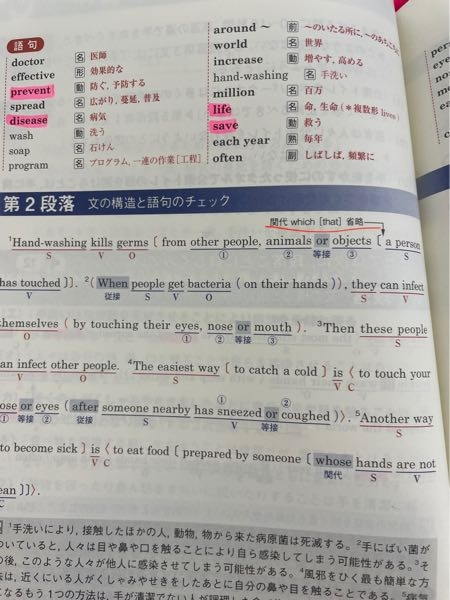 語句
doctor 名 医師
effective 形 効果的な
prevent 動 防ぐ, 予防する
spread 名 広がり, 蔓延, 普及
disease 名 病気
wash 動 洗う
soap 名 石けん
program 名 プログラム, 一連の作業[工程]
around ~ 前 ~のいたる所に,
world 名 世界
increase 動 増やす, 高める
hand-washing 名 手洗い
million 名 百万
life 名 命, 生命 (*複数形 lives)
save 動 救う
each year 熟 毎年
often 副 しばしば, 頻繁に
第2段落 文の構造と語句のチェック
関代 which [that] 省略
1Hand-washing kills germs [ from other people, animals or objects [ a person
S V O ① ② 等接 ③ S
has touched ]]. 2( When people get bacteria ( on their hands )), they can infect
V 従接 S V O S V
themselves ( by touching their eyes, nose or mouth ). 3Then these people
O ① ② 等接 ③ S
an infect other people. 4The easiest way [ to catch a cold ] is 〈 to touch your
V O S V C
ose or eyes ( after someone nearby has sneezed or coughed )〉. 5Another way
① ②
等接 ② 従接 S V 等接 V S
to become sick ] is 〈 to eat food [ prepared by someone [ whose hands are not
V C 関代 S V
ean ]]〉.
C
1手洗いにより, 接触したほかの人, 動物, 物から来た病原菌は死滅する。2手にばい菌が
ついていると, 人々は目や鼻や口を触ることにより自ら感染してしまう可能性がある。3そ
の後, このような人々が他人に感染させてしまう可能性がある。4風邪をひく最も簡単な方
法は, 近くにいる人がくしゃみやせきをしたあとに自分の鼻や目を触ることである。5病気
になるもう1つの方法は, 手が清潔でない人が調理した